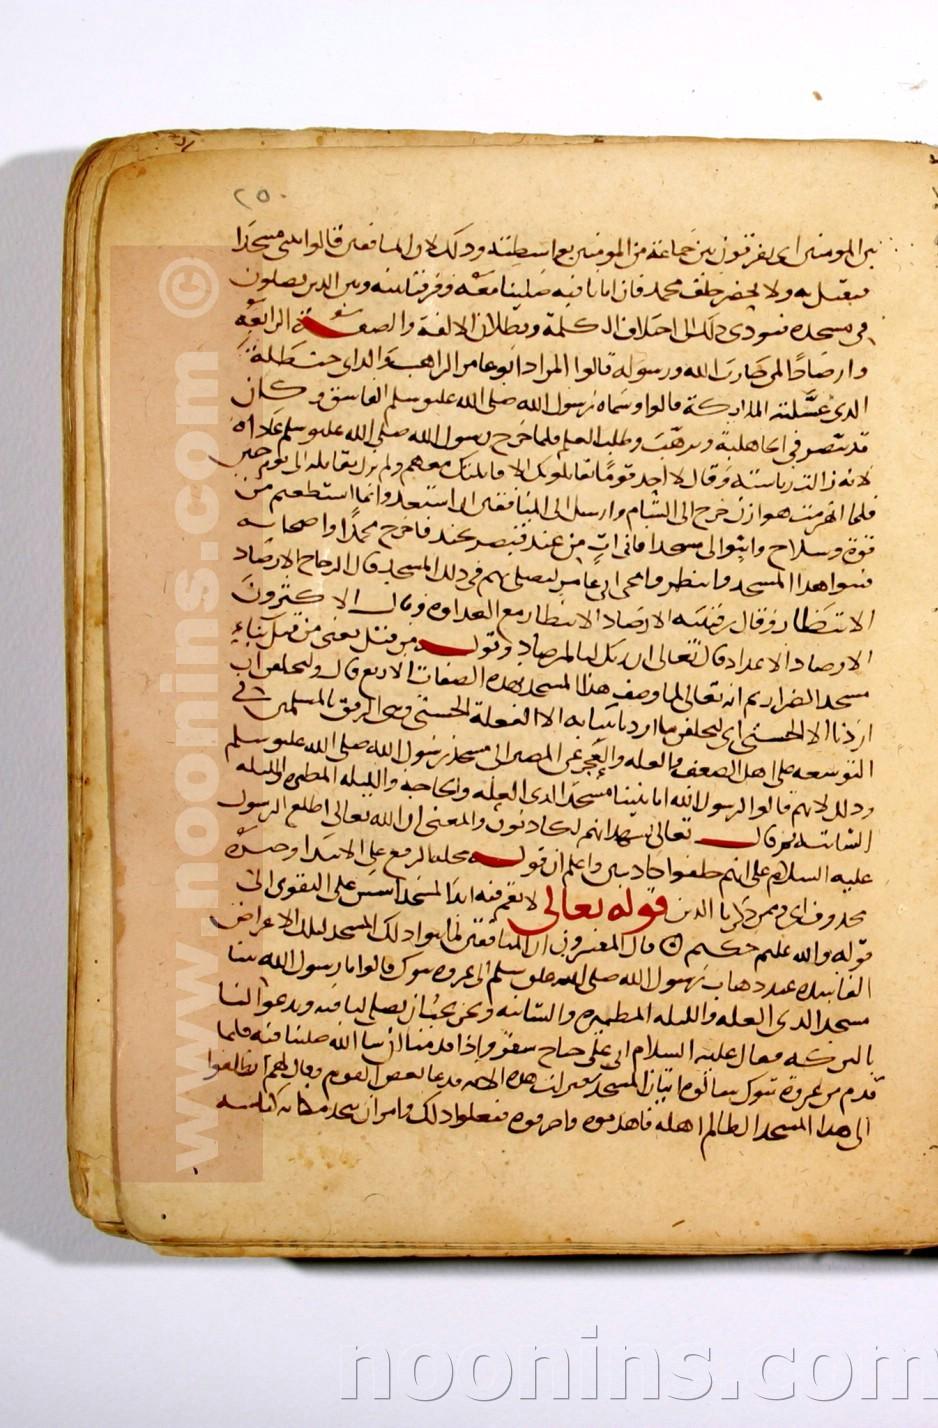 ٢٥٠
بين المومنين اى يفرقون بين جماعة من المومنين بواسطته وذلك لان المنافقين قالوا نبنى مسجدا
فنصلى فيه ولا نحضر خلف محمد فان اتانا فيه صلينا معه وفرقنا بينه وبين الذين يصلون
فى مسجده فيودى ذلك الى اختلاف الكلمة وبطلان الالفة والصفة الرابعة
وارصادا لمن حارب الله ورسوله قالوا المراد ابو عامر الراهب والد حنظلة
الذى غسلته الملايكة قالوا وسماه رسول الله صلى الله عليه وسلم الفاسق وكان
قد تنصر فى الجاهلية وترهب وطلب العلم فلما خرج رسول الله صلى الله عليه وسلم عاداه
لانه زالت رياسته وقال لا اجد قوما يقاتلونك الا قاتلتك معهم ولم يزل يقاتله الى يوم حنين
فلما انهزمت هوازن خرج الى الشام وارسل الى المنافقين ان استعدوا بما استطعتم من
قوة وسلاح وابنوا لى مسجدا فانى ات من عند قيصر بجند فاخرج محمدا واصحابه
فبنوا هذا المسجد وانتظروا مجى ابى عامر ليصلى بهم فى ذلك المسجد قال الزجاج الارصاد
الانتظار وقال ابن قتيبه الارصاد الانتظار مع العداوة وقال الاكثرون
الارصاد الاعداد قال تعالى ان ربك لبالمرصاد وقوله من قبل يعنى من قبل بناء
مسجد الضرار ثم انه تعالى لما وصف هذا المسجد بهذه الصفات الاربع قال وليحلفن ان
اردنا الا الحسنى اى ليحلفن ما اردنا ببنايه الا الفعلة الحسنى وهى الرفق بالمسلمين فى
التوسعه على اهل الضعف والعله والعجز عن المصير الى مسجد رسول الله صلى الله عليه وسلم
وذلك لانهم قالوا لرسول الله انا بنينا مسجدا لذى العلة والحاجة والليله المطيره والليله
الشاتيه ثم قال تعالى والله يشهد انهم لكاذبون والمعنى ان الله تعالى اطلع الرسول
عليه السلام على انهم حلفوا كاذبين واعلم ان قوله والذين محله الرفع على الابتدا وخبره
محذوف اى وممن ذكرنا الذين قوله تعالى لا تقم فيه ابدا لمسجد اسس على التقوى الى
قوله والله عليم حكيم قال المفسرون ان المنافقين لما بنوا ذلك المسجد لتلك الاعراض
الفاسده عند ذهاب رسول الله صلى الله عليه وسلم الى غزوه تبوك قالوا يا رسول الله بنينا
مسجدا لذى العله والليله المطيره والشاتيه ونحن نحب ان تصلى لنا فيه وتدعو لنا
بالبركه فقال عليه السلام انى على جناح سفر واذا قدمنا ان شا الله صلينا فيه فلما
قدم من غزوة تبوك سالوه اتيان المسجد فنزلت هذه الايه فدعا بعض القوم وقال لهم انطلقوا
الى هذا المسجد الظالم اهله فاهدموه واحرقوه ففعلوا ذلك وامر ان يتخذ مكانه كناسه
www.noonins.com ©
noonins.com